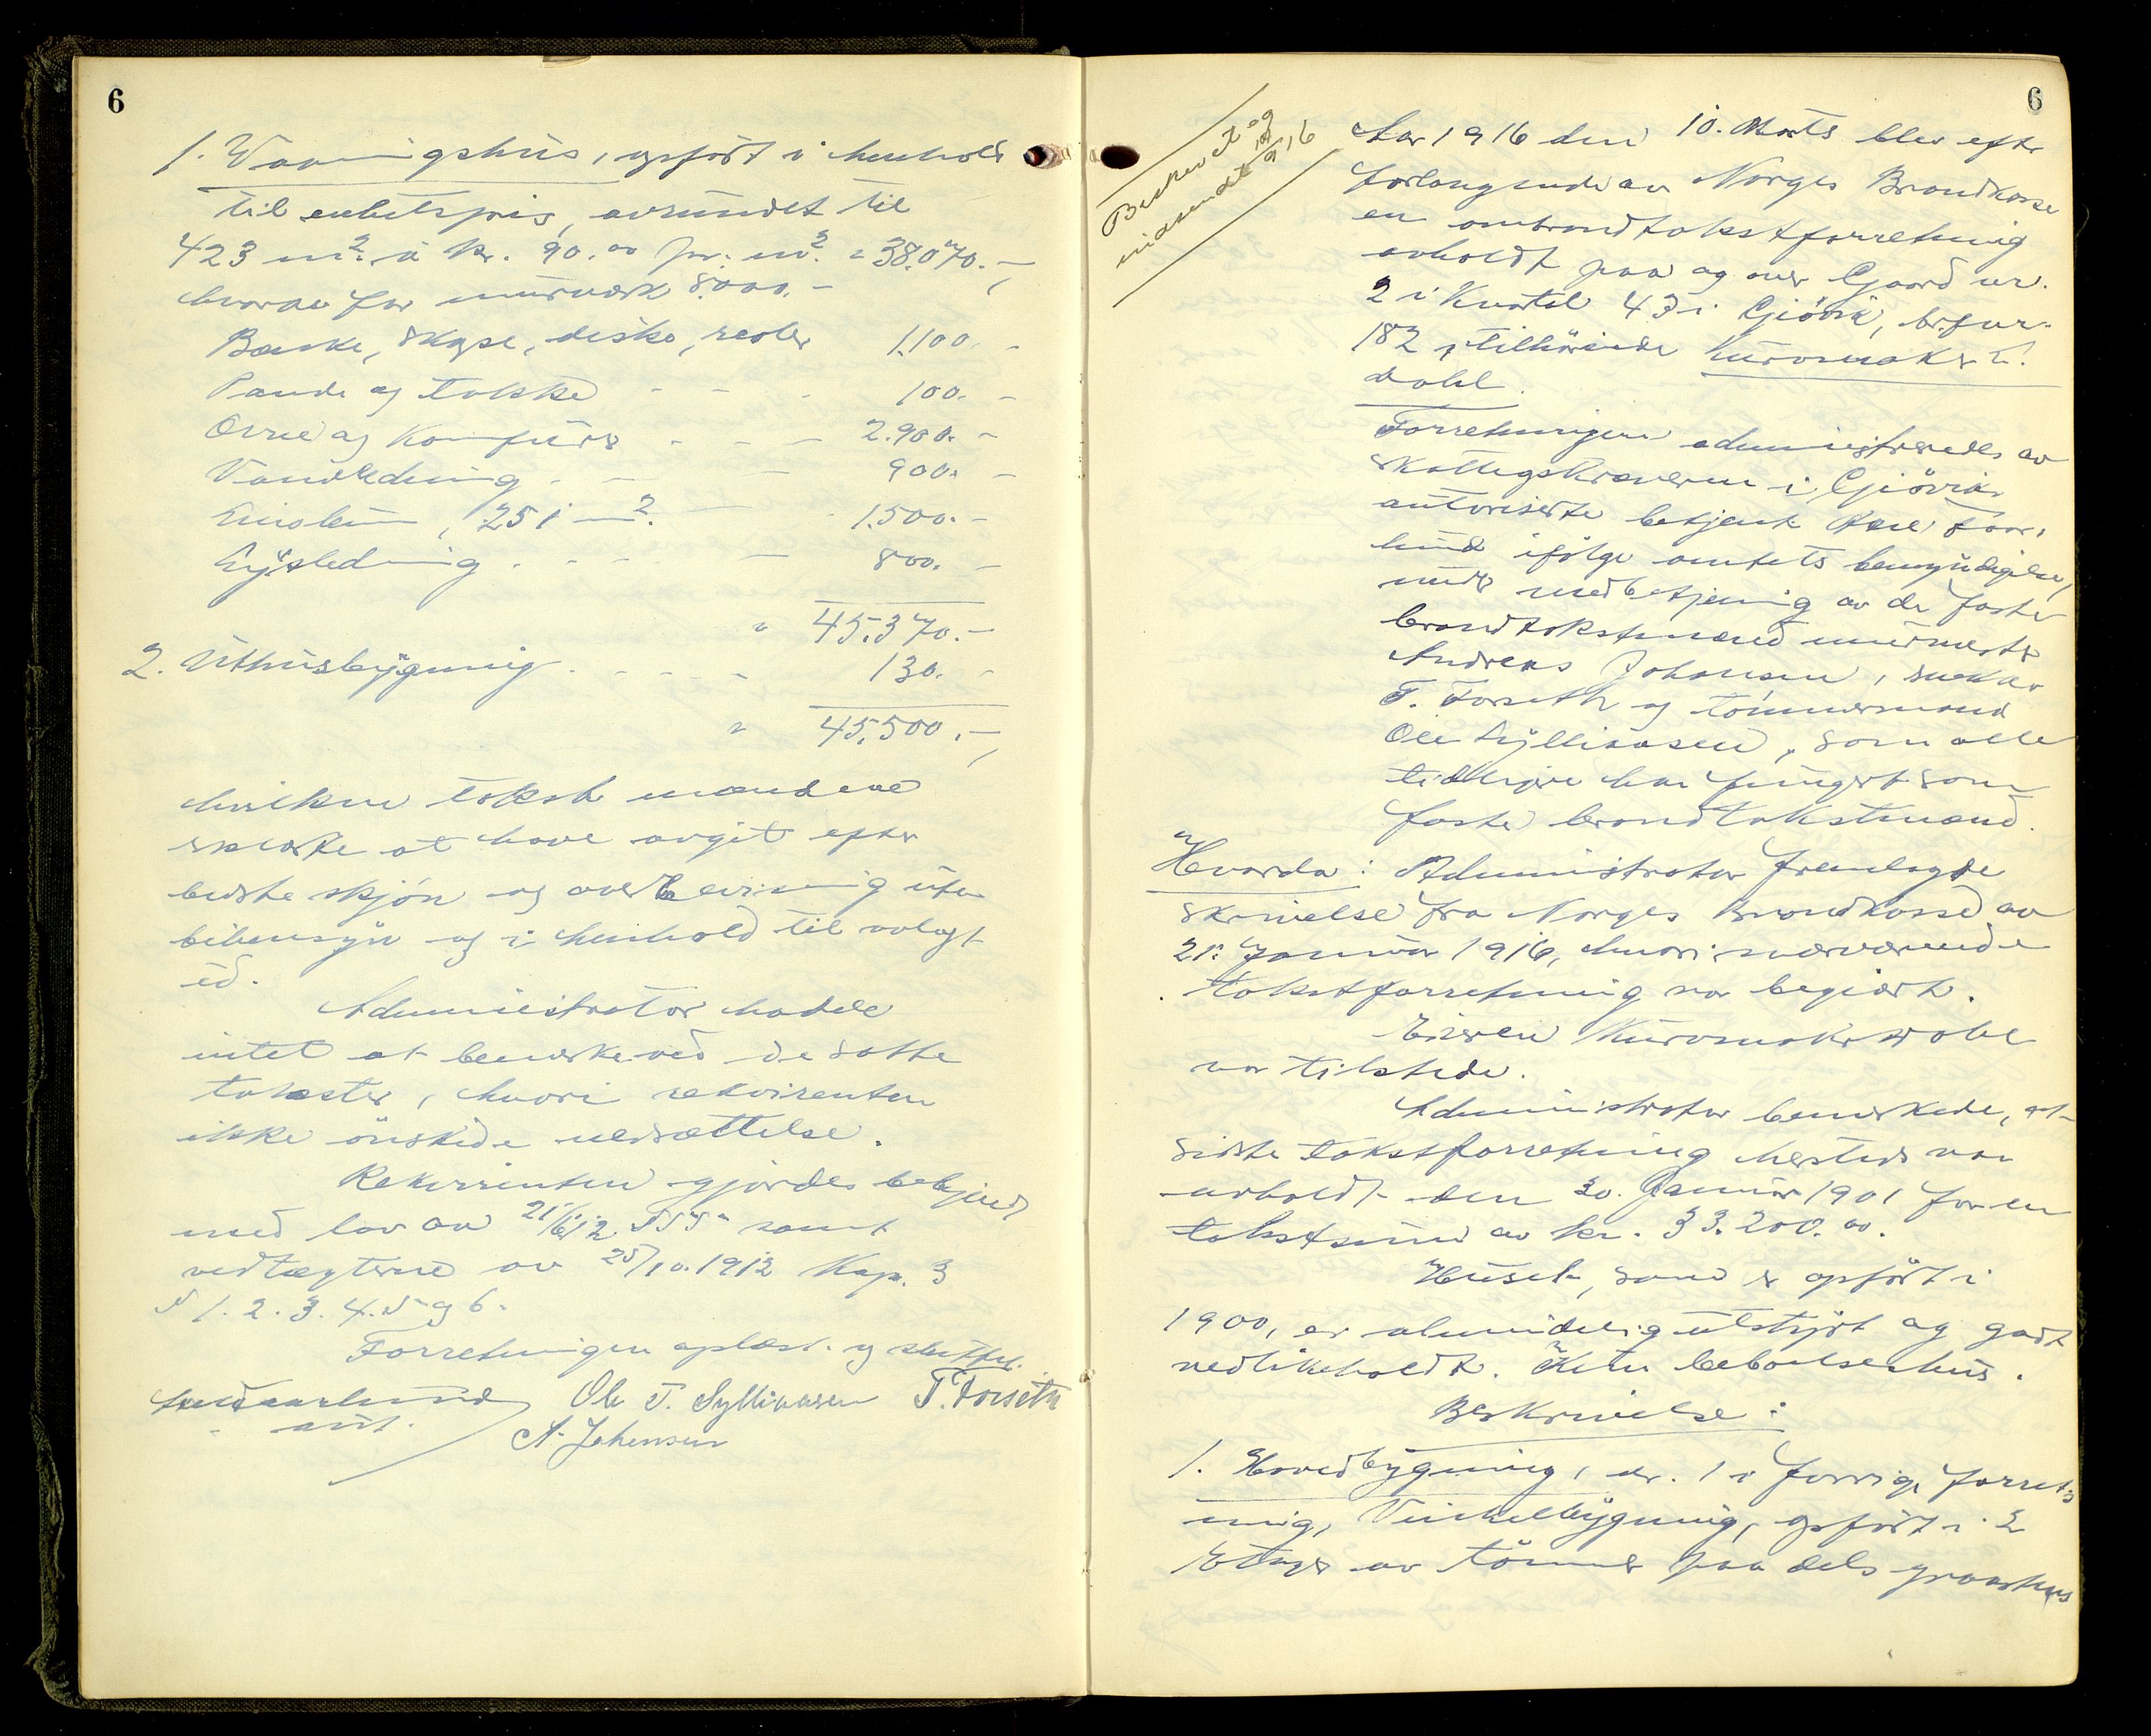 6
1. Vaaningshus, opført i henhold
til enhetspris, avrundet til
423 m². à kr. 90.00 pr. m². = 38.070.-
hvorav for murværk 8000.-
Bænke, skape, diske, reoler 1.100.-
Pande og takke - - - 100.-
Ovne og Komfurer - - - 2.900.-
Vandledning - - - 900.-
Linoleum, 251 m². - - 1.500.-
Lysledning - - - 800.-
" 45.370.-
2. Uthusbygning - - - - 130.-
" 45.500.-
hvilken takst mændene
erklærte at have avgit efter
bedste skjøn og overbevisning uten
bihensyn og i henhold til avlagt
ed.
Administrator hadde
intet at bemerke ved de satte
takster, hvori rekvirenten
ikke ønskede nedsættelse.
Rekvirenten gjordes bekjendt
med lov av 21/6 12 § 55 samt
vedtægterne av 25/10. 1912 Kap. 3
§ 1. 2. 3. 4. 5 og 6.
Forretningen oplæst og sluttet.
Ole T. Sylliaasen T. Forseth
aut. A. Johansen
6
Beskrevet og
indsendt 1916
Aar 1916 den 10. Marts blev efter
forlangende av Norges Brandkasse
en ombrandtakstforretning
avholdt paa og over Gaard nr.
2 i Kvartal 43 i Gjøvik, br.fors.
182, tilhørende Kurvmaker
Dahl.
Forretningen administreredes av
skattopkræveren i Gjøvik
autoriserte betjent
ifølge amtets bemyndigelse,
under medbetjening av de faste
brandtakstmænd murmester
Andreas Johansen, snekker
T. Forseth og tømmermand
Ole Sylliaasen, som alle
tidligere har fungert som
faste brandtakstmænd.
Hvorda: Administrator fremlagde
skrivelse fra Norges Brandkasse av
21. Januar 1916, hvori nærværende
takstforretning var begjært.
Eieren Kurvmaker Dahl
var tilstede.
Administrator bemerkede, at
sidste takstforretning hersteds var
avholdt den 30. Januar 1901 for en
takstsum av kr. 33.200.00.
Huset, som er opført i
1900, er almindelig utstyrt og godt
vedlikeholdt. Kun beboelseshus.
Beskrivelse:
1. Hovedbygning, nr. 1 i forrige forret-
ning, Vinkelbygning, opført i 2
Etager av tømmer paa dels graastens